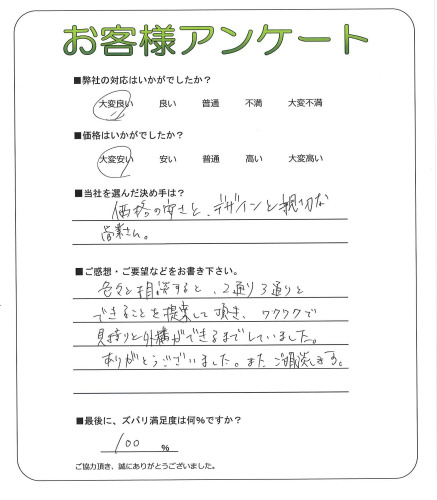 お客様アンケート
■弊社の対応はいかがでしたか？
大変良い 良い 普通 不満 大変不満
■価格はいかがでしたか？
大変安い 安い 普通 高い 大変高い
■当社を選んだ決め手は？
価格の安さと、デザインと親切な
営業さん。
■ご感想・ご要望などをお書き下さい。
色々と相談すると、2通り3通りと
できることを提案して頂き、ワクワクで
見積りと外構ができるまでしていました。
ありがとうございました。またご相談します。
■最後に、ズバリ満足度は何%ですか？
100 %
ご協力頂き、誠にありがとうございました。